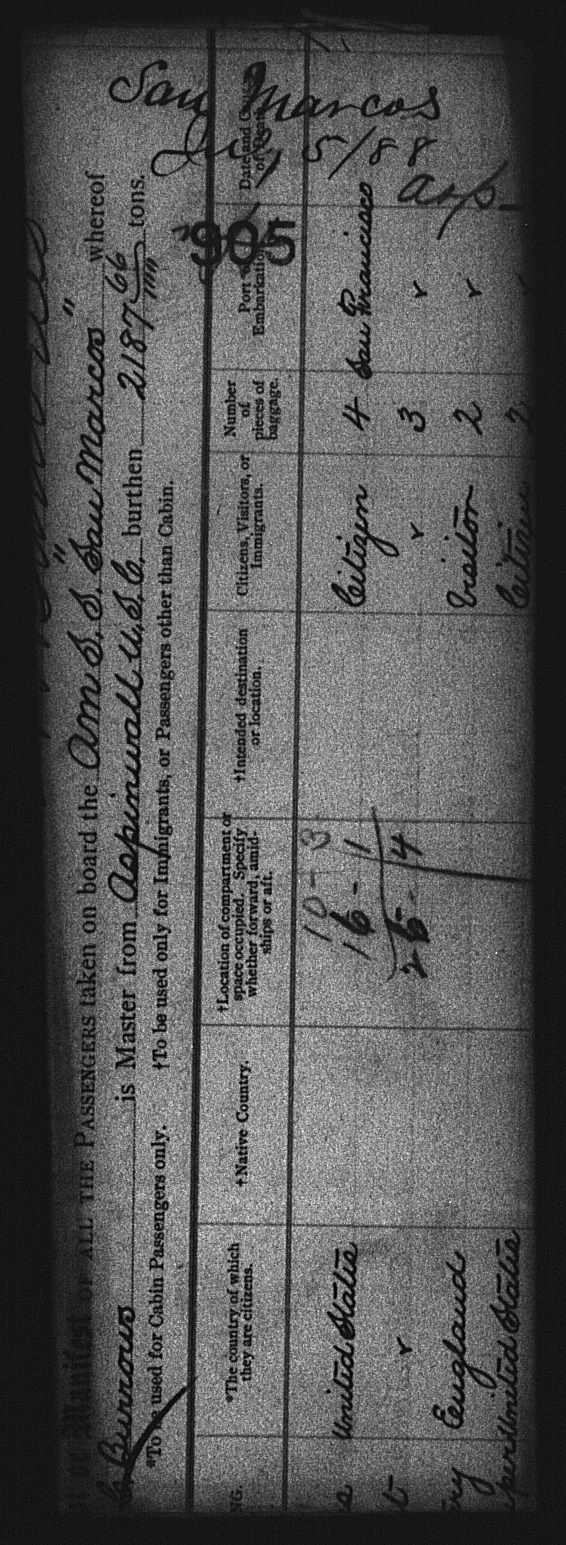 San Marcos
Dec 5/88
Asp.
905
Manifest OF ALL THE PASSENGERS taken on board the Am S. S. San Marcos whereof
Burrows is Master from Aspinwall U.S.C. burthen 2187 66/100 tons.
*To be used for Cabin Passengers only. †To be used only for Immigrants, or Passengers other than Cabin.
*The country of which they are citizens.
†Native Country.
†Location of compartment or space occupied. Specify whether forward, amidships or aft.
†Intended destination or location.
Citizens, Visitors, or Immigrants.
Number of pieces of baggage.
Port of Embarkation
Date and
United States Citizen 4 San Francisco
" " 3 "
England Visitor 2 "
United States Citizen 2 "
10 - 3
16 - 1
26 - 4